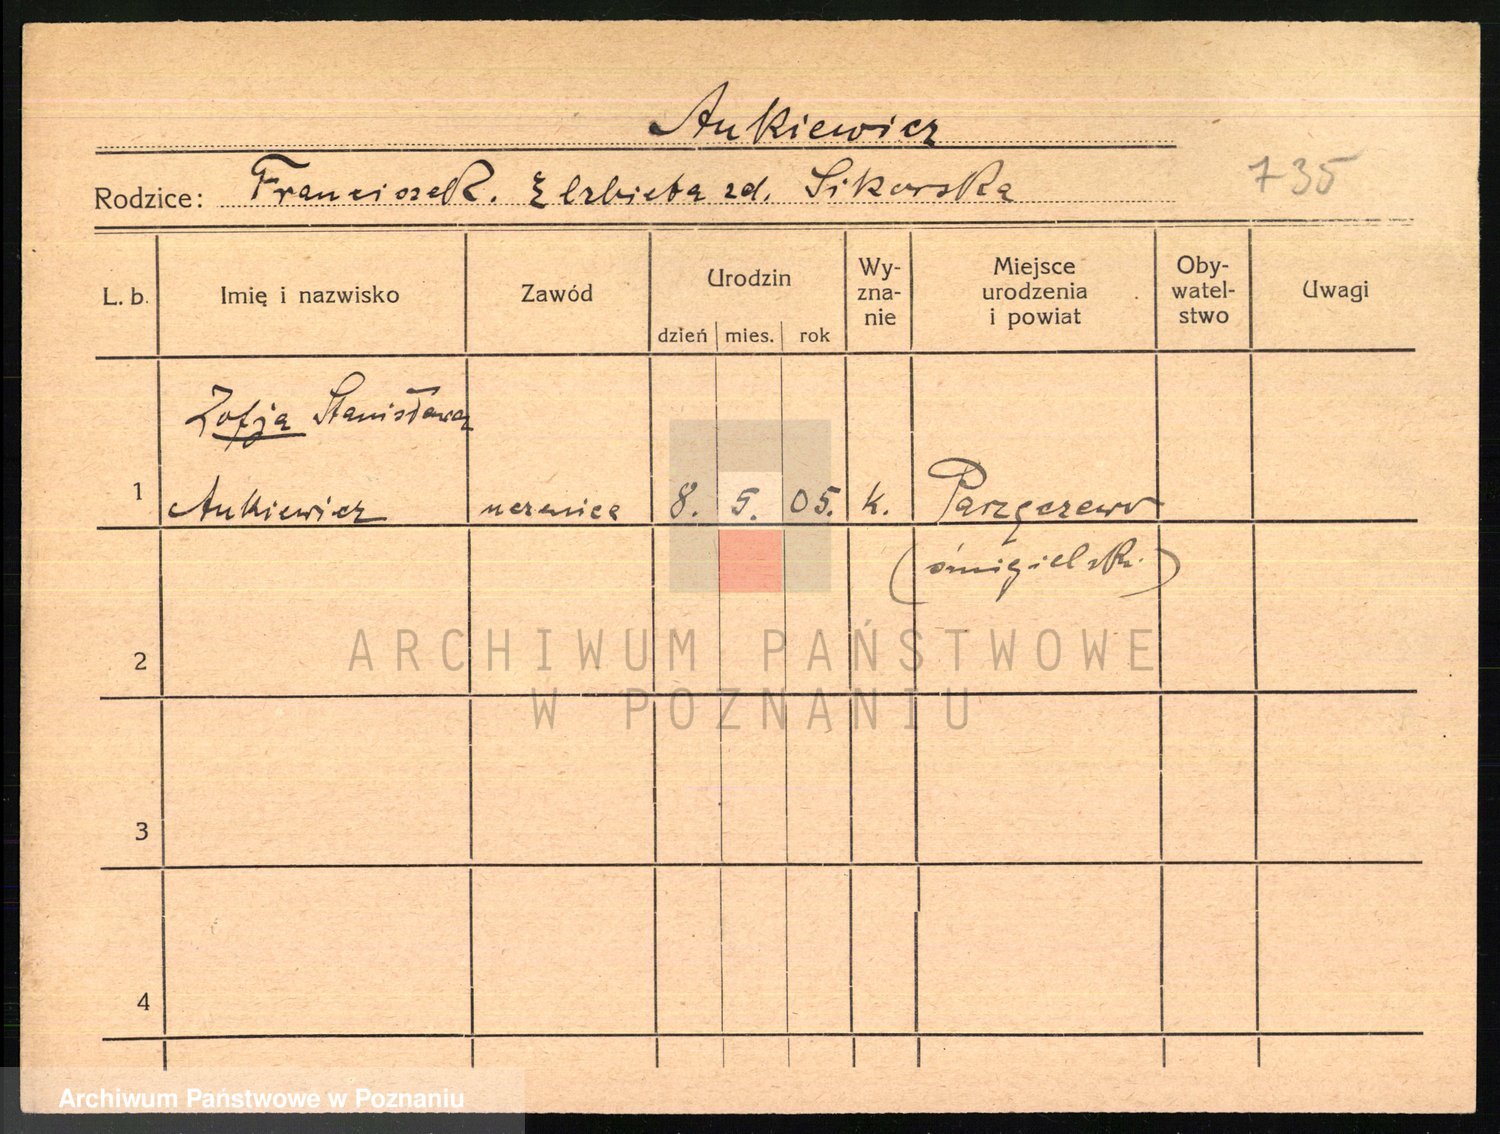 Ankiewicz
Rodzice: Franciszek. Elzbieta zd. Sikorska
735
L. b.
Imię i nazwisko
Zawód
Urodzin
dzień mies. rok
Wy-
zna-
nie
Miejsce
urodzenia
i powiat
Oby-
watel-
stwo
Uwagi
Zofja Stanisława
1 Ankiewicz uczenica 8. 5. 05. k.
(śmigielsk.)
2
3
4
ARCHIWUM PAŃSTWOWE
W POZNANIU
Archiwum Państwowe w Poznaniu